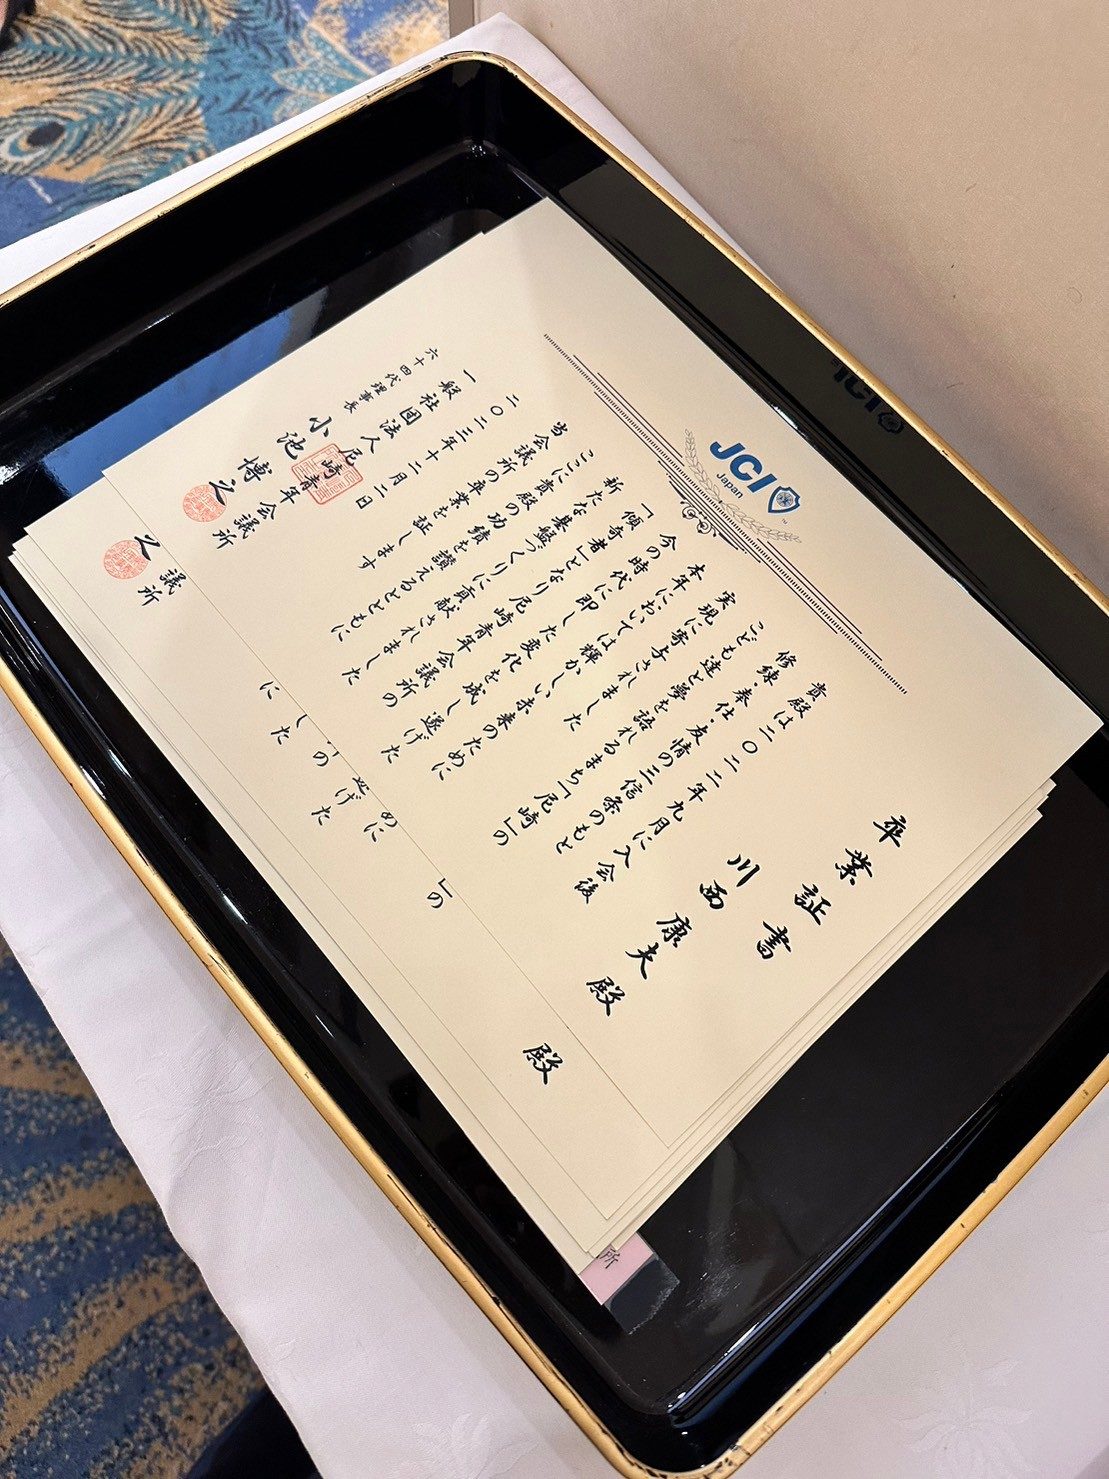 JCI
Japan
卒業証書
川西康夫 殿
貴殿は二〇二二年九月に入会後
修練・奉仕・友情の三信条のもと
こども達と夢を語れるまち「尼崎」の
実現に寄与されました
本年においては輝かしい未来のために
今の時代に即した変化を成し遂げた
「傾奇者」となり尼崎青年会議所の
新たな基盤づくりに貢献されました
ここに貴殿の功績を讃えるとともに
当会議所の卒業を証します
二〇二三年十二月二日
一般社団法人尼崎青年会議所
六十四代理事長
小池博之
殿
」の
めに
遂げた
の
した
に
議所
之
所